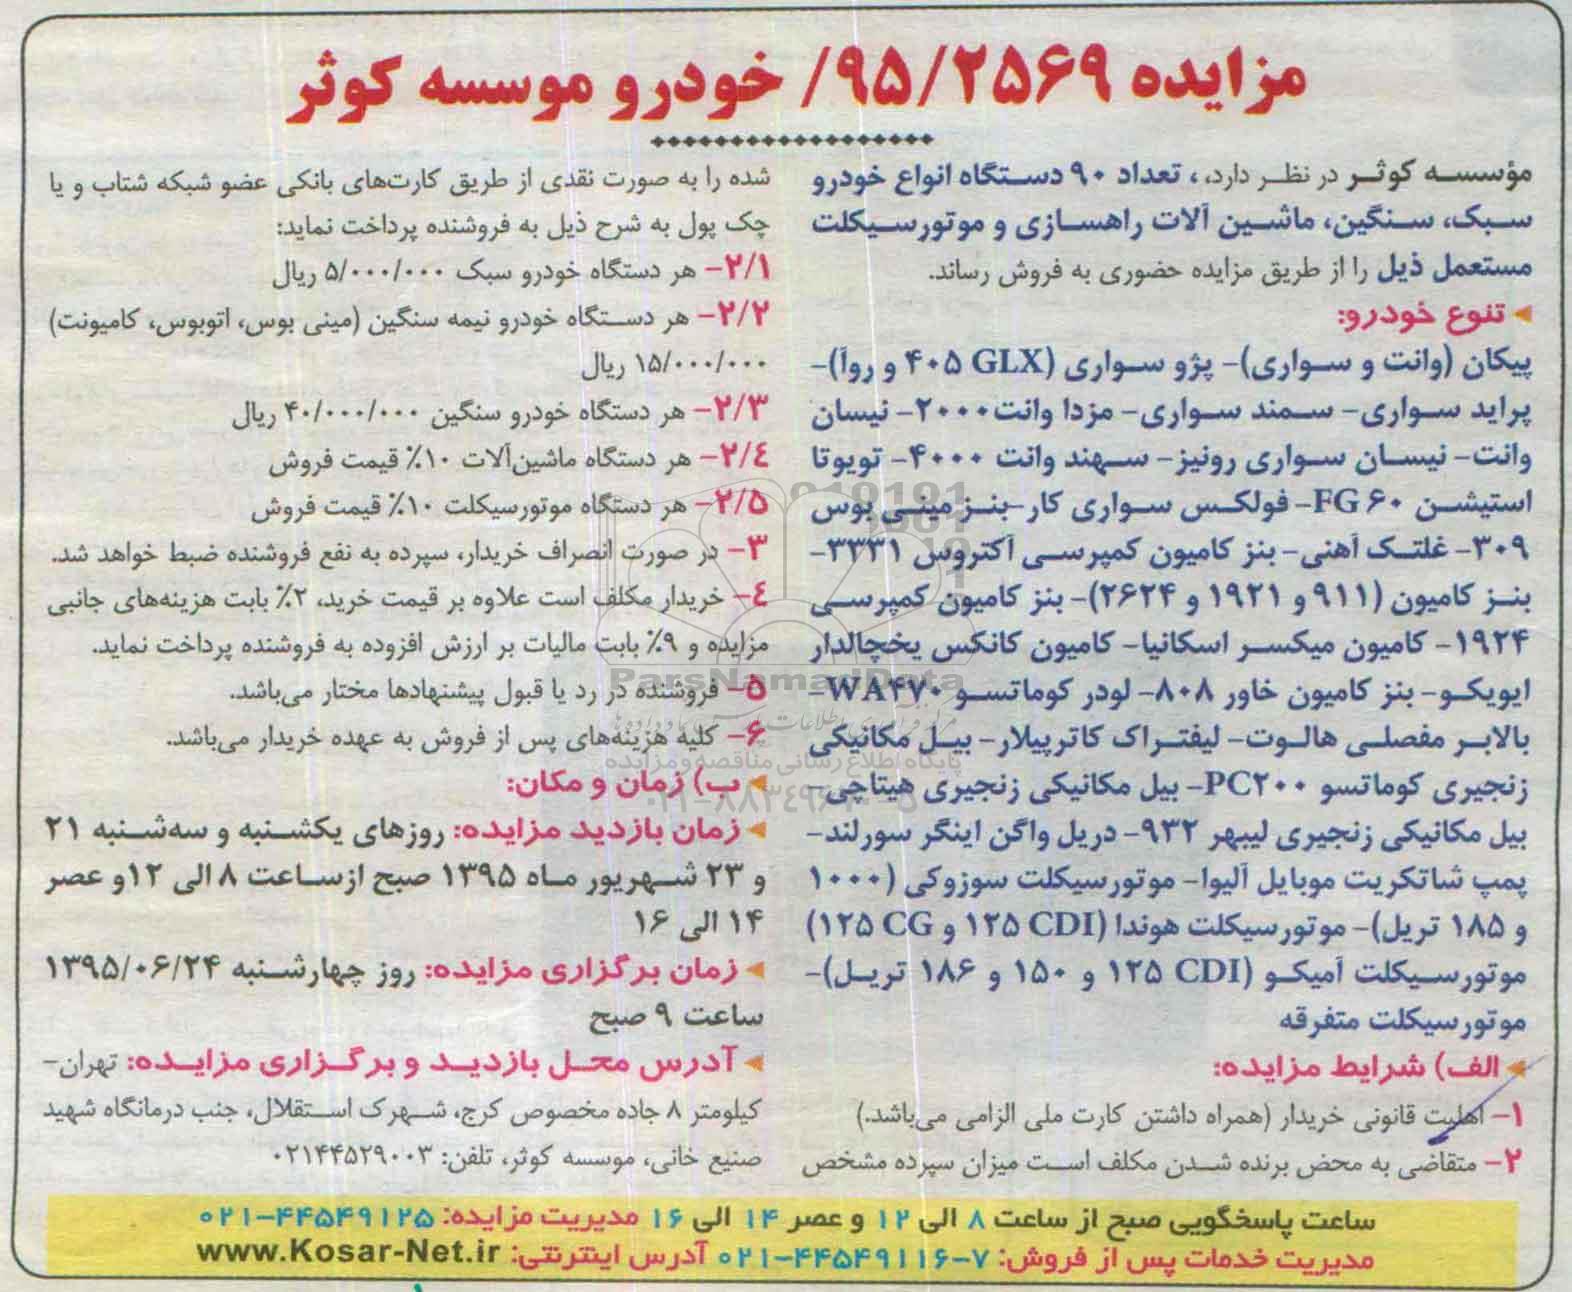 مزایده ۹۵/۲۵۶۹/ خودرو موسسه کوثر
مؤسسه کوثر در نظر دارد، تعداد ۹۰ دستگاه انواع خودرو
سبک، سنگین، ماشین آلات راهسازی و موتورسیکلت
مستعمل ذیل را از طریق مزایده حضوری به فروش رساند.
تنوع خودرو:
پیکان (وانت و سواری)- پژو سواری (GLX ۴۰۵ و روآ)-
پراید سواری- سمند سواری- مزدا وانت۲۰۰۰- نیسان
وانت- نیسان سواری رونیز- سهند وانت ۴۰۰۰- تویوتا
استیشن FG۶۰- فولکس سواری کار-بنز مینی بوس
۳۰۹- غلتک آهنی- بنز کامیون کمپرسی آکتروس ۳۳۳۱-
بنز کامیون (۹۱۱ و ۱۹۲۱ و ۲۶۲۴)- بنز کامیون کمپرسی
۱۹۲۴- کامیون میکسر اسکانیا- کامیون کانکس یخچالدار
ایویکو- بنز کامیون خاور ۸۰۸- لودر کوماتسو WA۴۷۰-
بالابر مفصلی هالوت- لیفتراک کاترپیلار- بیل مکانیکی
زنجیری کوماتسو PC۲۰۰- بیل مکانیکی زنجیری هیتاچی-
بیل مکانیکی زنجیری لیبهر ۹۳۲- دریل واگن اینگر سورلند-
پمپ شاتکریت موبایل آلیوا- موتورسیکلت سوزوکی (۱۰۰۰
و ۱۸۵ تریل)- موتورسیکلت هوندا (CDI ۱۲۵ و CG ۱۲۵)
موتورسیکلت آمیکو (CDI ۱۲۵ و ۱۵۰ و ۱۸۶ تریل)-
موتورسیکلت متفرقه
الف) شرایط مزایده:
۱- اهلیت قانونی خریدار (همراه داشتن کارت ملی الزامی می‌باشد.)
۲- متقاضی به محض برنده شدن مکلف است میزان سپرده مشخص
شده را به صورت نقدی از طریق کارت‌های بانکی عضو شبکه شتاب و یا
چک پول به شرح ذیل به فروشنده پرداخت نماید:
۲/۱- هر دستگاه خودرو سبک ۵/۰۰۰/۰۰۰ ریال
۲/۲- هر دستگاه خودرو نیمه سنگین (مینی بوس، اتوبوس، کامیونت)
۱۵/۰۰۰/۰۰۰ ریال
۲/۳- هر دستگاه خودرو سنگین ۴۰/۰۰۰/۰۰۰ ریال
۲/٤- هر دستگاه ماشین‌آلات ۱۰٪ قیمت فروش
۲/۵- هر دستگاه موتورسیکلت ۱۰٪ قیمت فروش
۳- در صورت انصراف خریدار، سپرده به نفع فروشنده ضبط خواهد شد.
٤- خریدار مکلف است علاوه بر قیمت خرید، ۲٪ بابت هزینه‌های جانبی
مزایده و ۹٪ بابت مالیات بر ارزش افزوده به فروشنده پرداخت نماید.
۵- فروشنده در رد یا قبول پیشنهادها مختار می‌باشد.
۶- کلیه هزینه‌های پس از فروش به عهده خریدار می‌باشد.
ب) زمان و مکان:
زمان بازدید مزایده: روزهای یکشنبه و سه‌شنبه ۲۱
و ۲۳ شهریور ماه ۱۳۹۵ صبح ازساعت ۸ الی ۱۲و عصر
۱۴ الی ۱۶
زمان برگزاری مزایده: روز چهارشنبه ۱۳۹۵/۰۶/۲۴
ساعت ۹ صبح
آدرس محل بازدید و برگزاری مزایده: تهران-
کیلومتر ۸ جاده مخصوص کرج، شهرک استقلال، جنب درمانگاه شهید
صنیع خانی، موسسه کوثر، تلفن: ۰۲۱۴۴۵۲۹۰۰۳
ساعت پاسخگویی صبح از ساعت ۸ الی ۱۲ و عصر ۱۴ الی ۱۶ مدیریت مزایده: ۰۲۱-۴۴۵۴۹۱۲۵
مدیریت خدمات پس از فروش: ۷-۰۲۱-۴۴۵۴۹۱۱۶ آدرس اینترنتی: www.Kosar-Net.ir
ParsNamadData
پایگاه اطلاع رسانی مناقصه و مزایده